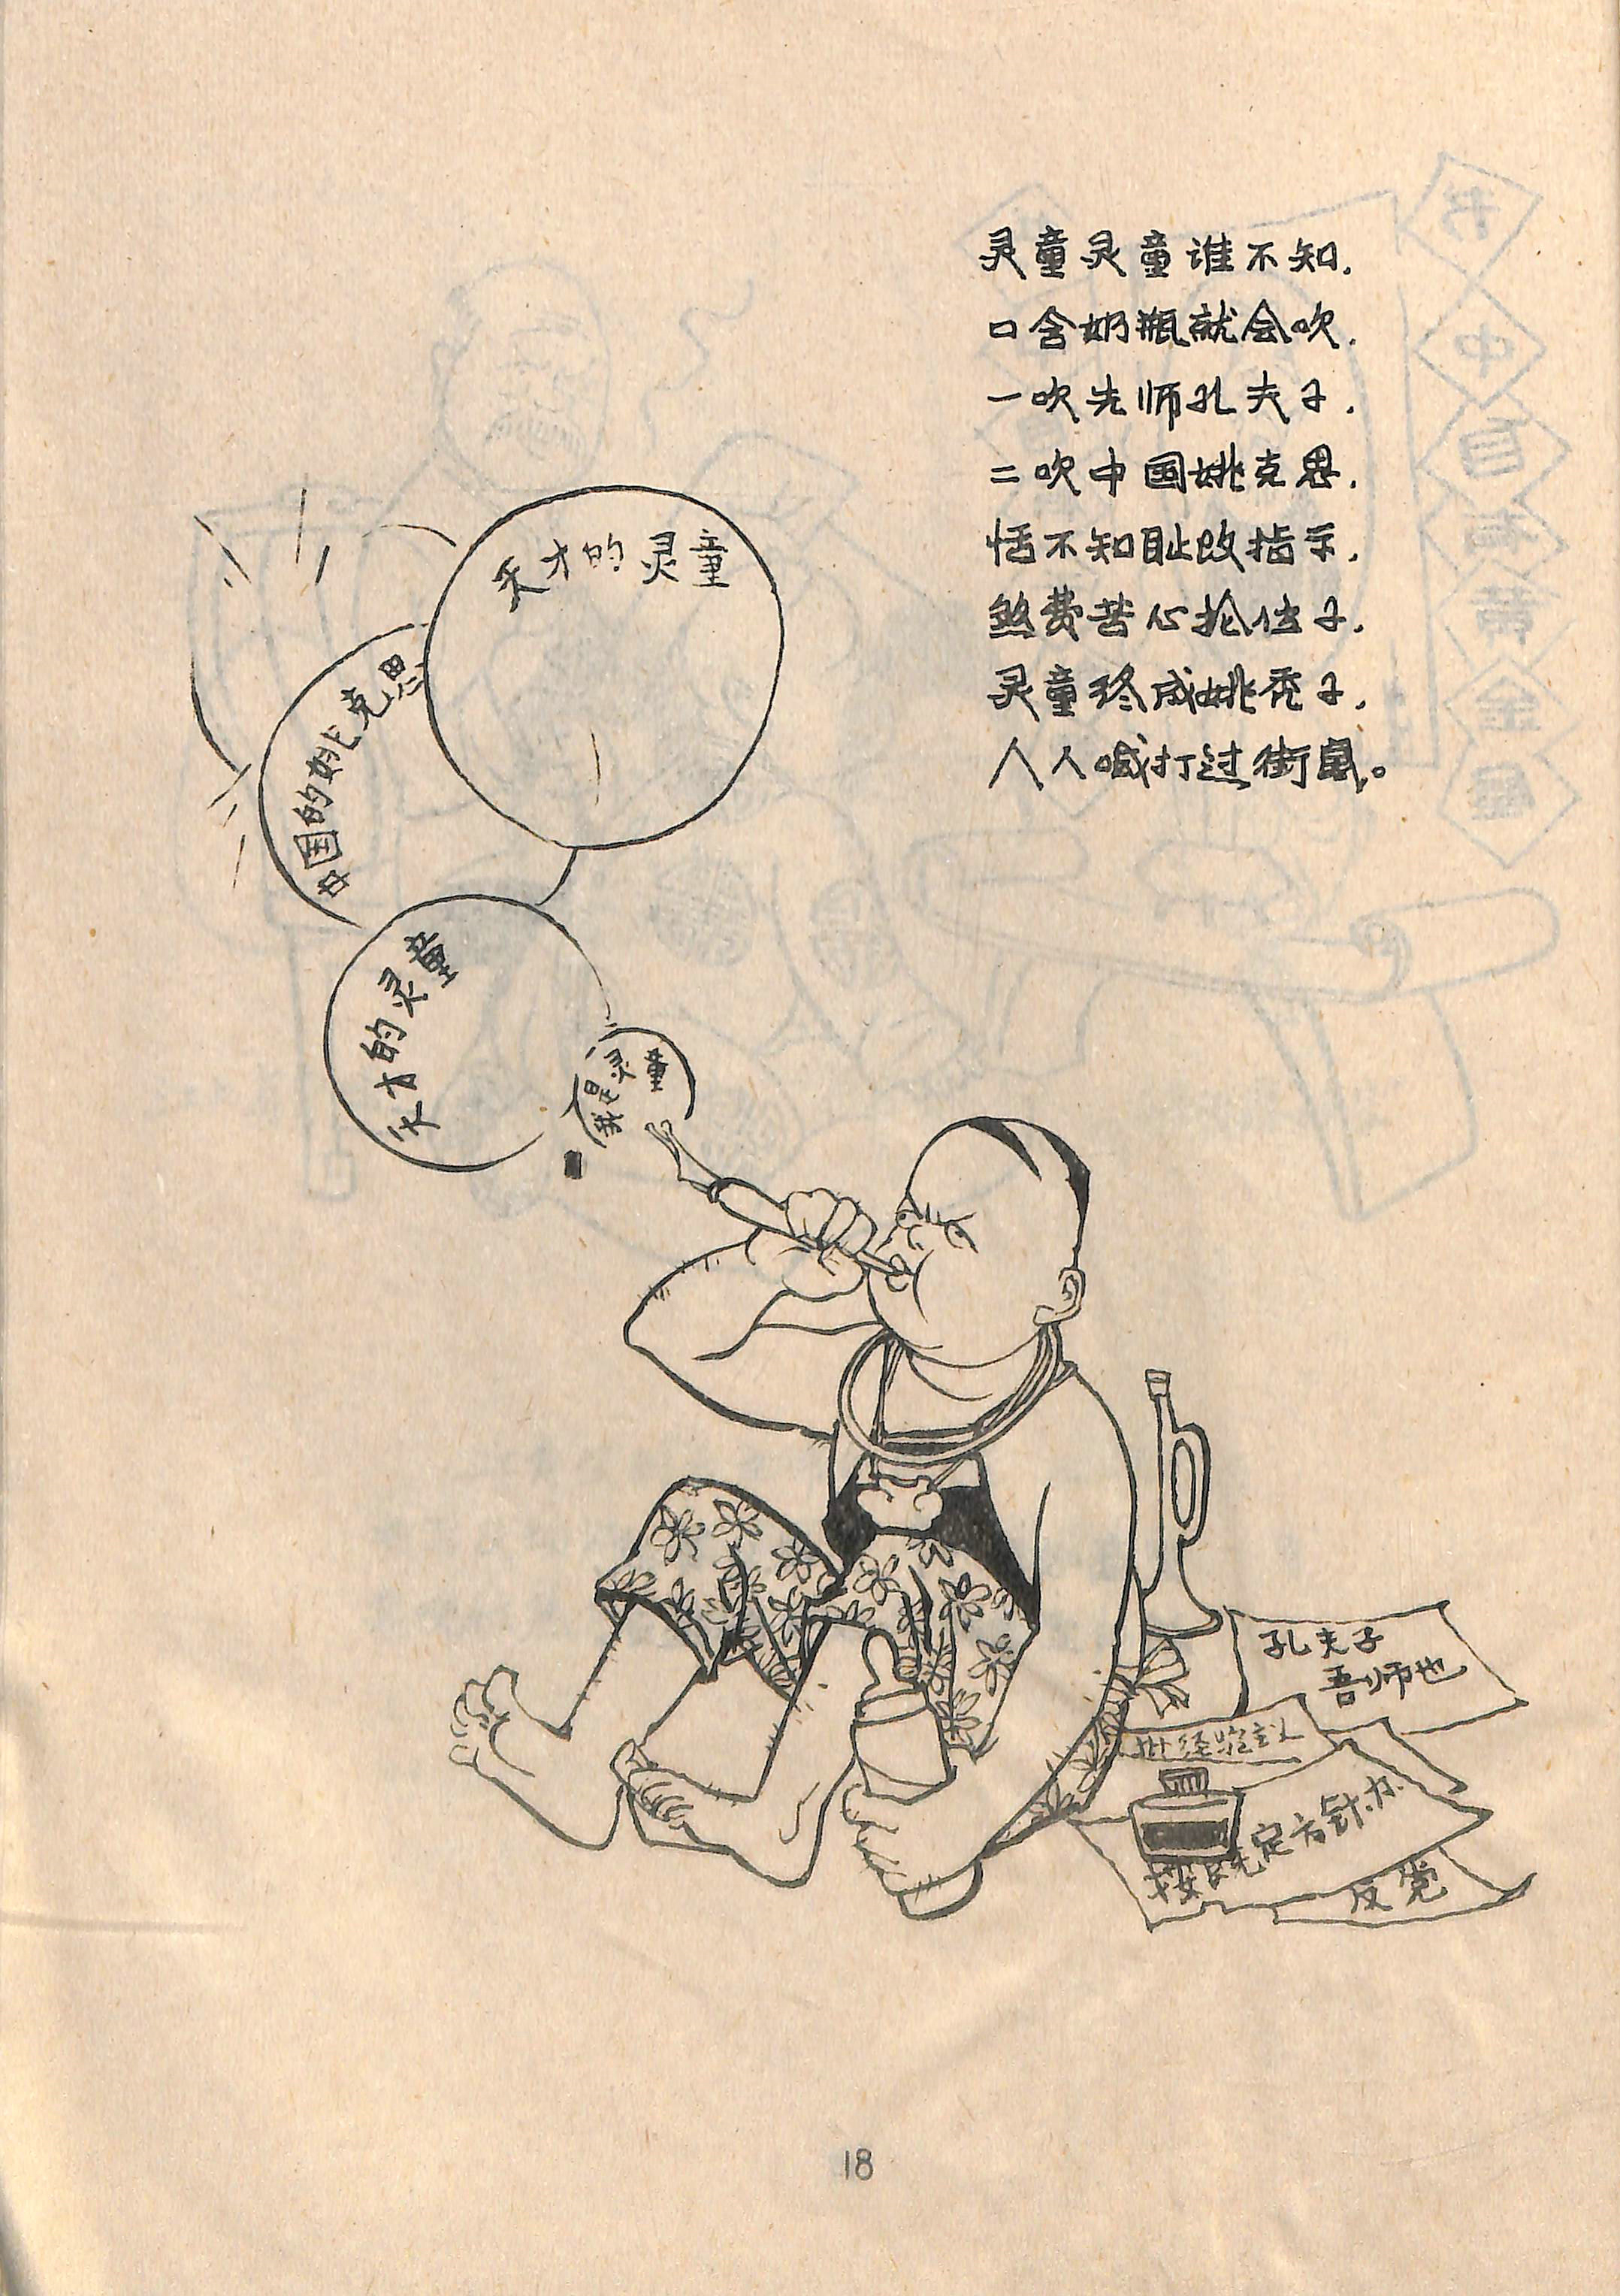 灵童灵童谁不知，
口含奶瓶就会吹，
一吹先师孔夫子，
二吹中国姚克思，
恬不知耻改指示，
煞费苦心抢位子，
灵童终成姚秃子，
人人喊打过街鼠。
天才的灵童
中国的姚克思
天才的灵童
我是灵童
孔夫子
吾师也
批经验主义
按既定方针办
反党
18